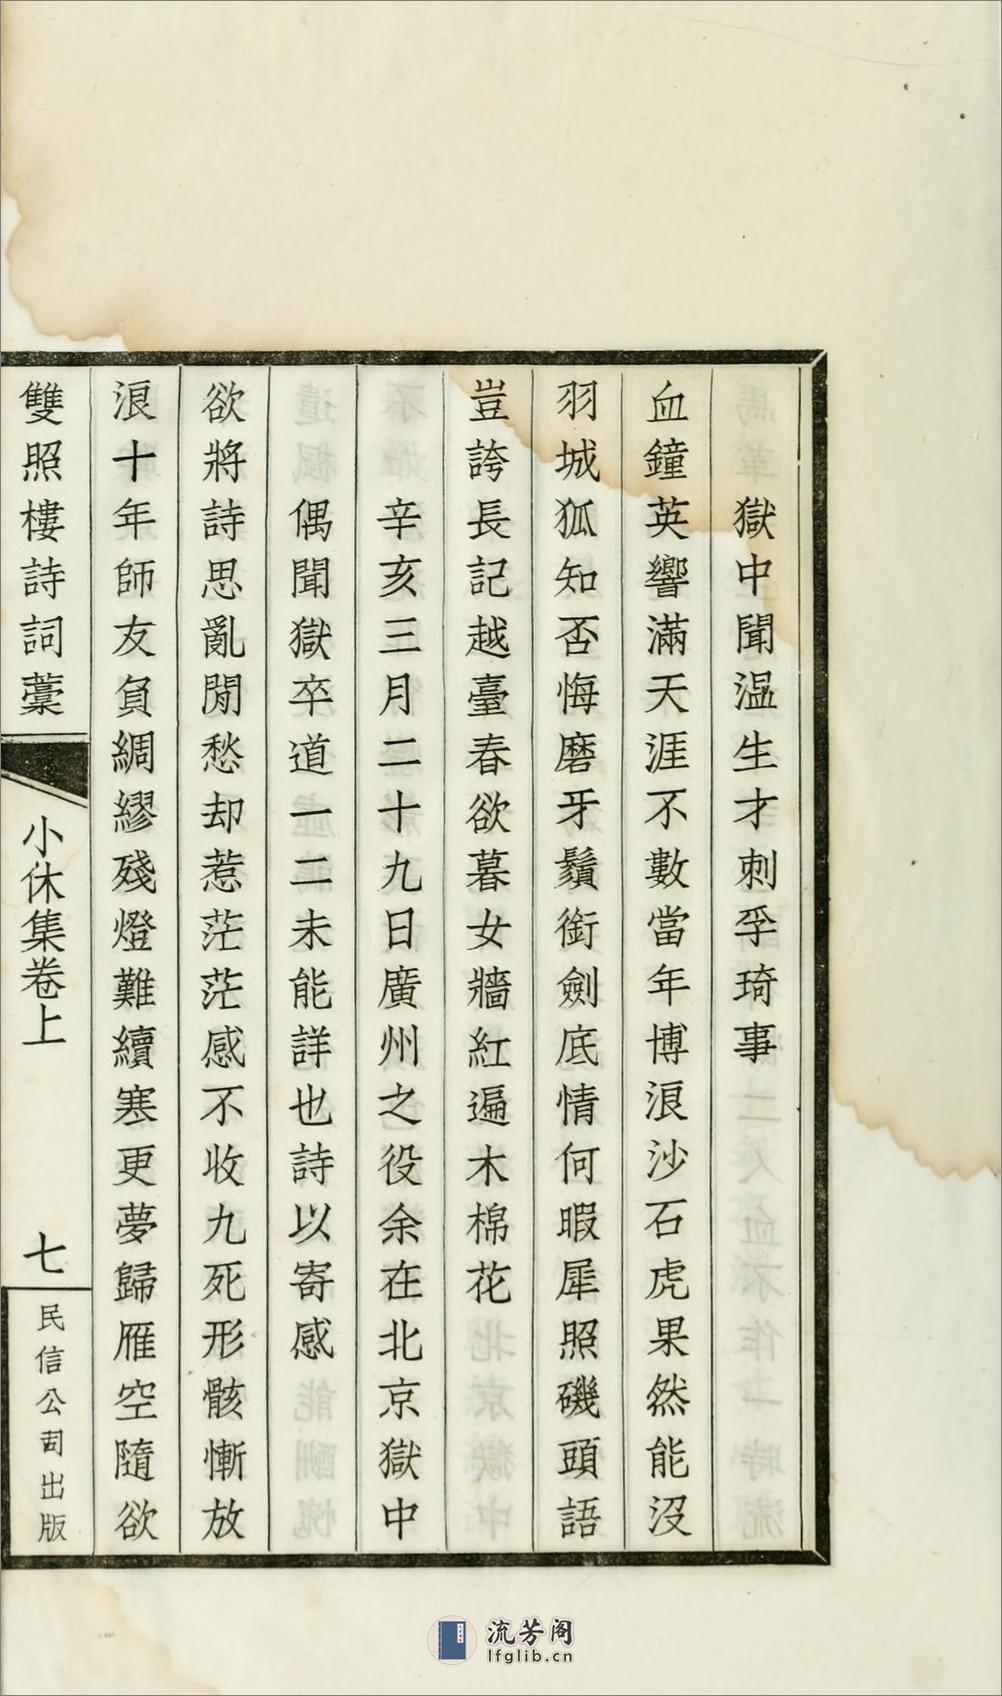 獄中聞温生才刺孚琦事
血鐘英響滿天涯不數當年博浪沙石虎果然能没
羽城狐知否悔磨牙鬚銜劍底情何暇犀照磯頭語
豈誇長記越臺春欲暮女牆紅遍木棉花
辛亥三月二十九日廣州之役余在北京獄中
偶聞獄卒道一二未能詳也詩以寄感
欲將詩思亂閒愁却惹茫茫感不收九死形骸慚放
浪十年師友負綢繆殘燈難續寒更夢歸雁空隨欲
雙照樓詩詞藁
小休集卷上
七
民信公司出版
流芳阁
lfglib.cn